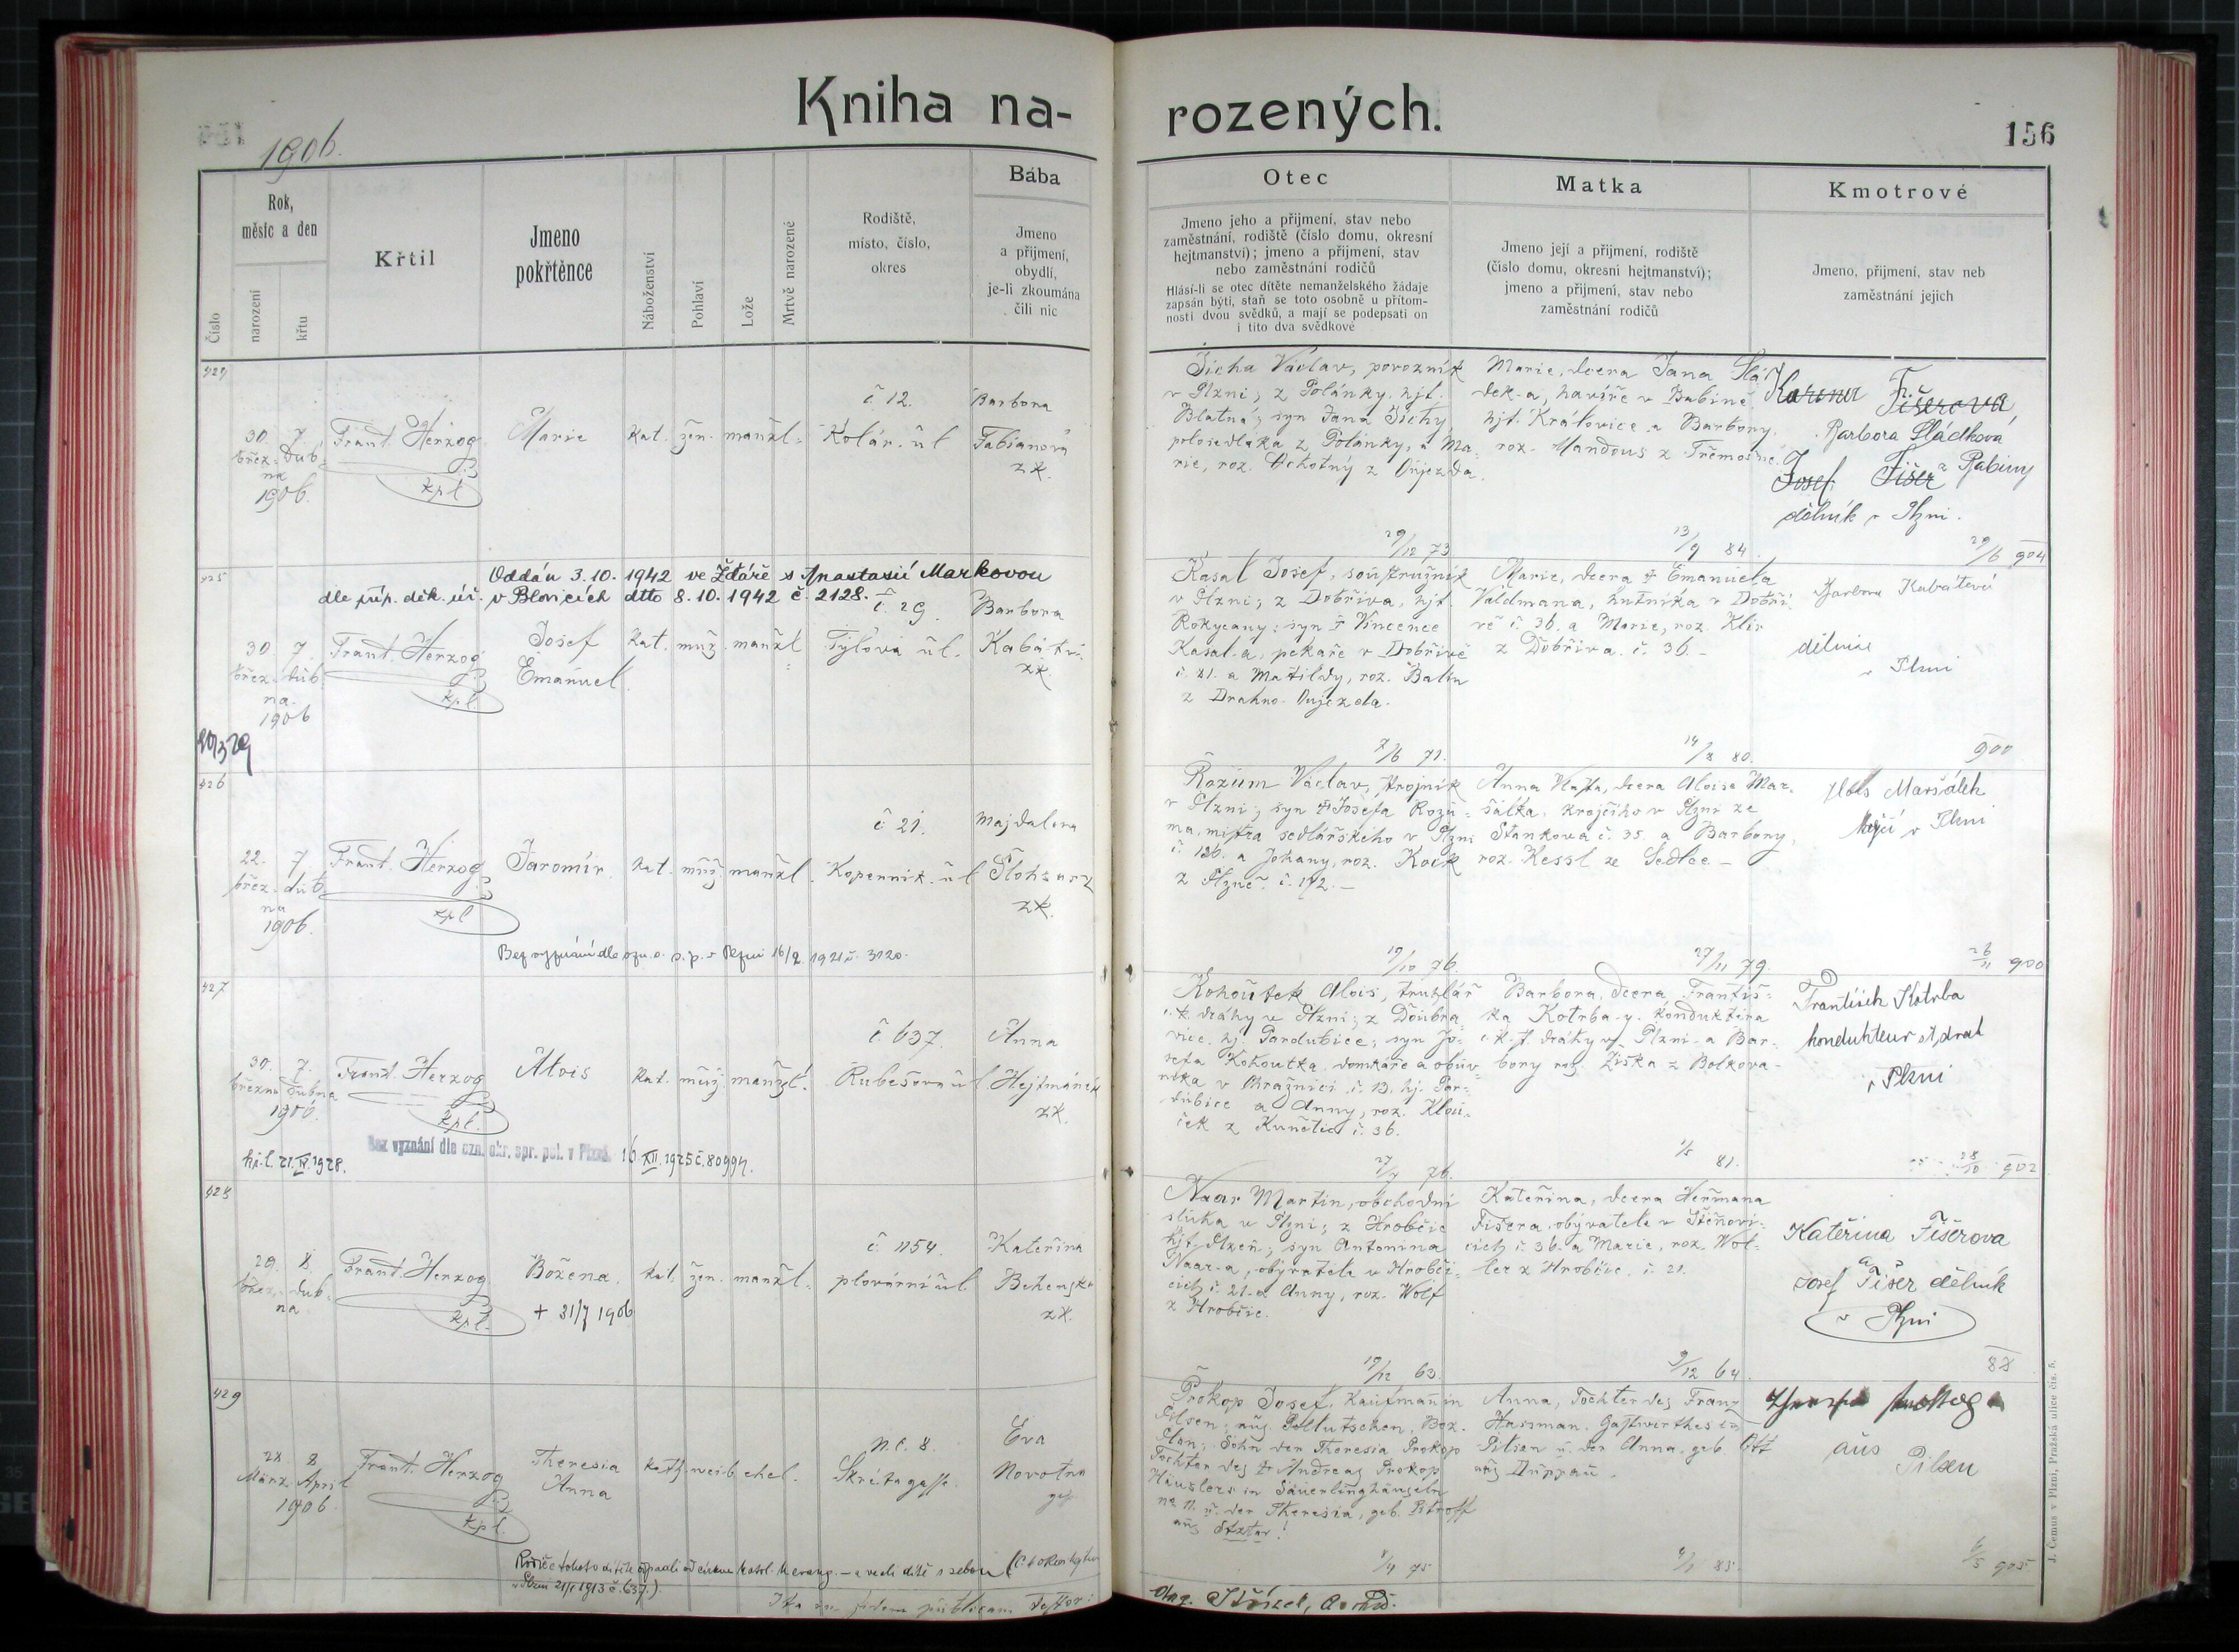 Kniha na-
rozených.
156
1906.
Číslo
Rok,
měsíc a den
narození
křtu
Křtil
Jmeno
pokřtěnce
Náboženství
Pohlaví
Lože
Mrtvě narozené
Rodiště,
místo, číslo,
okres
Bába
Jmeno
a příjmení,
obydlí,
je-li zkoumána
čili nic
Otec
Jmeno jeho a příjmení, stav nebo
zaměstnání, rodiště (číslo domu, okresní
hejtmanství); jmeno a příjmení, stav
nebo zaměstnání rodičů
Hlásí-li se otec dítěte nemanželského žádaje
zapsán býti, staň se toto osobně u přítom-
nosti dvou svědků, a mají se podepsati on
i tito dva svědkové
Matka
Jmeno její a příjmení, rodiště
(číslo domu, okresní hejtmanství);
jmeno a příjmení, stav nebo
zaměstnání rodičů
Kmotrové
Jmeno, příjmení, stav neb
zaměstnání jejich
424
30. 7.
břez. Dub-
na
1906.
Frant. Herzog
kpl
Marie
kat. žen. manžl.
č 12.
Kolár. ul
Barbora
Fabianová
zk.
Šicha Václav, povozník
v Plzni; z Polánky, hjt.
Blatná; syn Jana Šichy,
polosedláka z Polánky, a Ma-
rie, roz. Ochotný z Újezda.
29/12 73
Marie, dcera Jana Slá-
dek-a, havíře v Babině
hjt. Královice a Barbony,
roz. Mandous z Třemošné.
13/9 84
Fišerova
Barbora Sládková
z Babiny
Josef Fišer
dělník v Plzni.
29/6 904
425
Oddán 3.10. 1942 ve Žďáře s Anastasií Markovou
dle příp. děk. úř. v Blovicích dtto 8.10.1942 č. 2128.
30. 7.
břez. dub-
na.
1906
Frant. Herzog
kpl.
Josef
Emanuel
kat. muž. manžl
č. 29.
Tylova ul.
Barbora
Kabátní
zk.
Kasal Josef, soustružník
v Plzni; z Dobříva, hjt.
Rokycany: syn † Vincence
Kasal-a, pekaře v Dobřívě
č. 21. a Matildy, roz. Balín
z Drahno-Oujezda.
7/6 71.
Marie, dcera † Emanuela
Valdmana, hutníka v Dobří-
vě č. 36. a Marie, roz. Klír
z Dobříva. č. 36.
14/8 80.
Barbora Kubátová
dělnice
v Plzni
900
426
22. 7.
břez. dub-
na
1906.
Frant. Herzog
kpl
Jaromír
kat. muž. manžl.
č 21.
Kopernik. ul
Majdalena
zk.
Rozum Václav, strojník
v Plzni; syn † Josefa Rozu-
ma, mistra sedlářského v Plzni
č. 126. a Johany, roz. Kock
z Plzně. č. 172.
19/10 76.
Anna dcera Aloisa Mar-
šálka, krejčího v Plzni ze
Stankova č. 35. a Barbony,
roz. Kessl ze Sedlce
27/11 79.
Alois Maršálek
krejčí v Plzni
26/11 900
Bez vyznání dle ozn. o. s. p. v Plzni 16/2. 1921 č. 3120.
427
30. 7.
března Dubna
1906.
Frant. Herzog
kpl.
Alois
kat. muž. manžl.
č. 637.
Rubešova ul
Anna
Hejtmánek
zk.
Bez vyznání dle ozn. okr. spr. pol. v Plzni 16. XII. 1925 č. 80994.
21. IV. 1928.
Kohoutek Alois, truhlář
c. k. dráhy v Plzni; z Doubra-
vice, hj. Pardubice; syn Jo-
sefa Kohoutka, domkáře a obuv-
níka v Ohražnici č. 13. hj. Par-
dubice a Anny, roz. Klou-
ček z Kunětic č. 36.
27/7 76.
Barbora, dcera Františ-
ka Kotrba-y. konduktéra
c. k. st. dráhy v Plzni a Bar-
bony roz. Žiška z Bolkova
1/5 81.
František Kotrba
kondukteur st drah
v Plzni
28/10 902
428
29. 8.
břez. dub-
na
Frant. Herzog
kpl.
Božena.
+ 31/7 1906
kat. žen. manžl.
č. 1154.
plovární ul.
Kateřina
Behenská
zk.
Naar Martin, obchodní
sluha v Plzni; z Hrobčic
hjt. Plzeň; syn Antonína
Naar-a, obyvatele v Hrobči-
cích č. 21. a Anny, roz. Wolf
z Hrobčic.
19/12 63.
Kateřina, dcera Heřmana
Fišera, obyvatele v Stěnovi-
cích č. 36. a Marie, roz. Wol-
ler z Hrobčic, č. 21.
9/12 64.
Kateřina Fišerova
a
Josef Fišer dělník
v Plzni
88
429
28 8
März April
1906.
Frant. Herzog
kpl.
Theresia
Anna
kath. weib. ehel.
N.C. 8.
Skrétagasse.
Eva
Novotna
gep
Prokop Josef, Kaufmann in
Pilsen; aus Bez.
Plan; Sohn der Theresia Prokop
Tochter des † Andreas Prokop
Häuslers in Säuerlinghäuseln
no 11. u. der Theresia, geb. Pitroff
aus
8/4 75
Anna, Tochter des Franz
Hasman, Gastwirthes in
Pilsen u. der Anna, geb. Ott
aus Duppau.
85.
aus Pilsen
6/5 905
Rodiče tohoto dítěte odpadli od církve katol. k evang. — a vzali dítě s sebou
v Plzni 21/1 1913 č. 637.)
Ita in fidem publicam testor:
J. Čemus v Plzni, Pražská ulice čís. 5.